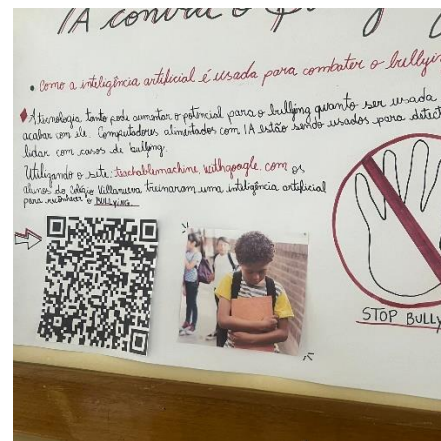 IA contra o
• Como a inteligência artificial é usada para combater o bullying
A tecnologia tanto pode aumentar o potencial para o bullying quanto ser usada
acabar com ele. Computadores alimentados com IA estão sendo usados para detect
lidar com casos de bullying.
Utilizando o site: teachablemachine.withgoogle.com os
alunos do Colégio Villanueva treinaram uma inteligência artificial
para reconhecer o BULLYING
STOP BULLY